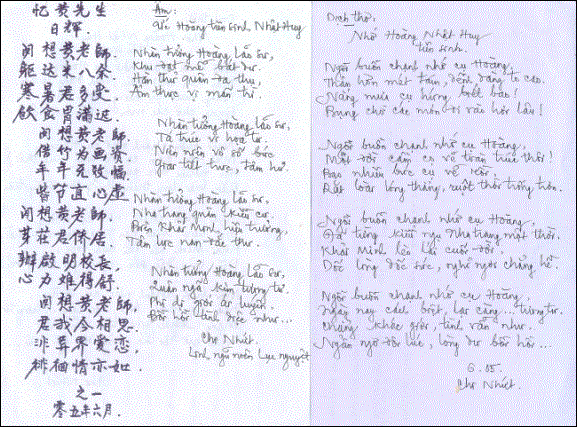 忆黄先生
日辉.
闲想黄老師.
躯达米八余.
寒暑君多受.
飲食胃滿迟.
闲想黄老師,
借竹为画资
年年无数幅
柴节直心虚
闲想黄老師.
芽莊君侨居.
辦啟明校長,
心力难得舒.
闲想黄老師,
君我今相思
非异界爱恋,
徘徊情亦如
之一
零五年六月.
Âm:
Ức Hoàng tiên sinh Nhật Huy
Nhàn tưởng Hoàng Lão sư,
Khu đạt mễ bát dư.
Hàn thử quân đa thụ,
Ẩm thực vị mãn trì.
Nhàn tưởng Hoàng Lão sư,
Tá trúc vi họa tư.
Niên niên vô số bức
trực tiết, tâm hư.
Nhàn tưởng Hoàng Lão sư,
Nha trang quân kiều cư,
Khải Minh hiệu trưởng,
Tâm lực nan đắc thư.
Nhàn tưởng Hoàng Lão sư,
Quân ngã kim tương tư.
Phi dị giới ái luyến,
Bồi hồi tình diệc như...
Chợ Nhiết
Dịch thơ:
Nhớ Hoàng Nhật Huy
tiên sinh.
Ngồi buồn chạnh nhớ cụ Hoàng,
Thân hơn mét tám, dềnh dàng to cao.
Nắng mưa cụ hứng biết bao!
Bụng chờ các món đi vào hơi lâu!
Ngồi buồn chạnh nhớ cụ Hoàng,
Một đời cầm cọ vẽ toàn trúc thôi!
Bao nhiêu bức cụ vẽ rồi
Rặt toàn lóng thẳng, ruột thời trống trơn.
Ngồi buồn chạnh nhớ cụ Hoàng,
Đã từng kiều ngụ Nha trang một thời.
Khải Minh
Dốc lòng dốc sức, nghỉ ngơi chẳng hề.
Ngồi buồn chạnh nhớ cụ Hoàng,
Ngày nay cách biệt, lại càng... tương tư.
Chẳng khác giới, tình vẫn như.
Ngẩn ngơ đôi lúc, lòng dư bồi hồi...
6. 05.
Chợ Nhiết.